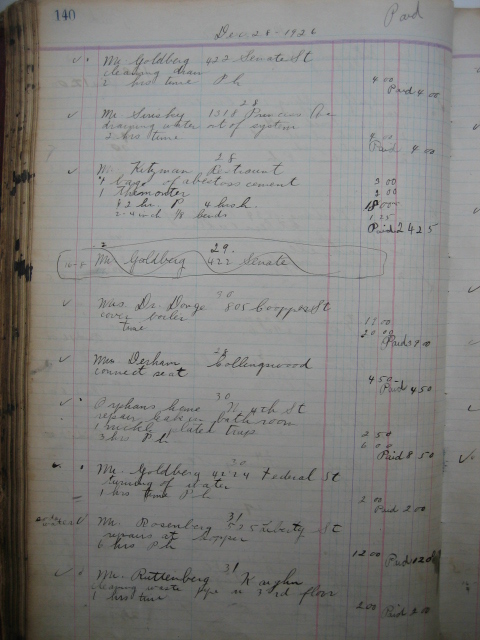 140
Dec 28 - 1926
Paid
Mr Goldberg 422 Senate St
cleaning drain
2 hrs time Ph 4 00
Paid 4 00
28
Mr 1318 Princess Ave
draining water out of system
2 hrs time 4 00
Paid 4 00
28
Mr Kitzman Restraunt
4 bags of abestoss cement 3 00
1 thermomter 2 00
2 hr. P 4 hr h. 18 00
2 - 4 inch 1/8 bends 1 25
Paid 24 25
29.
Mr Goldberg 422 Senate
30
Mrs. Dr. Donge 805 Cooper St
cover boiler 17 00
time 20 00
Paid 37 00
28
Mrs Derham Collingswood
connect seat 4 50
Paid 4 50
30
Orphans home N 4th St
repair leak in bath room
1 nickly plated trap 2 50
3 hrs Ph 6 00
Paid 8 50
30
Mr. Goldberg Federal St
turning of water
1 hrs time Ph 2 00
Paid 2 00
31
Mr. Rosenberg Liberty St
repairs at
6 hrs Ph 12 00
Paid 12 00
31
Mr. Ruttenberg Kaighn
cleaning waste pipe in 3rd floor
1 hrs time 2 00
Paid 2 00